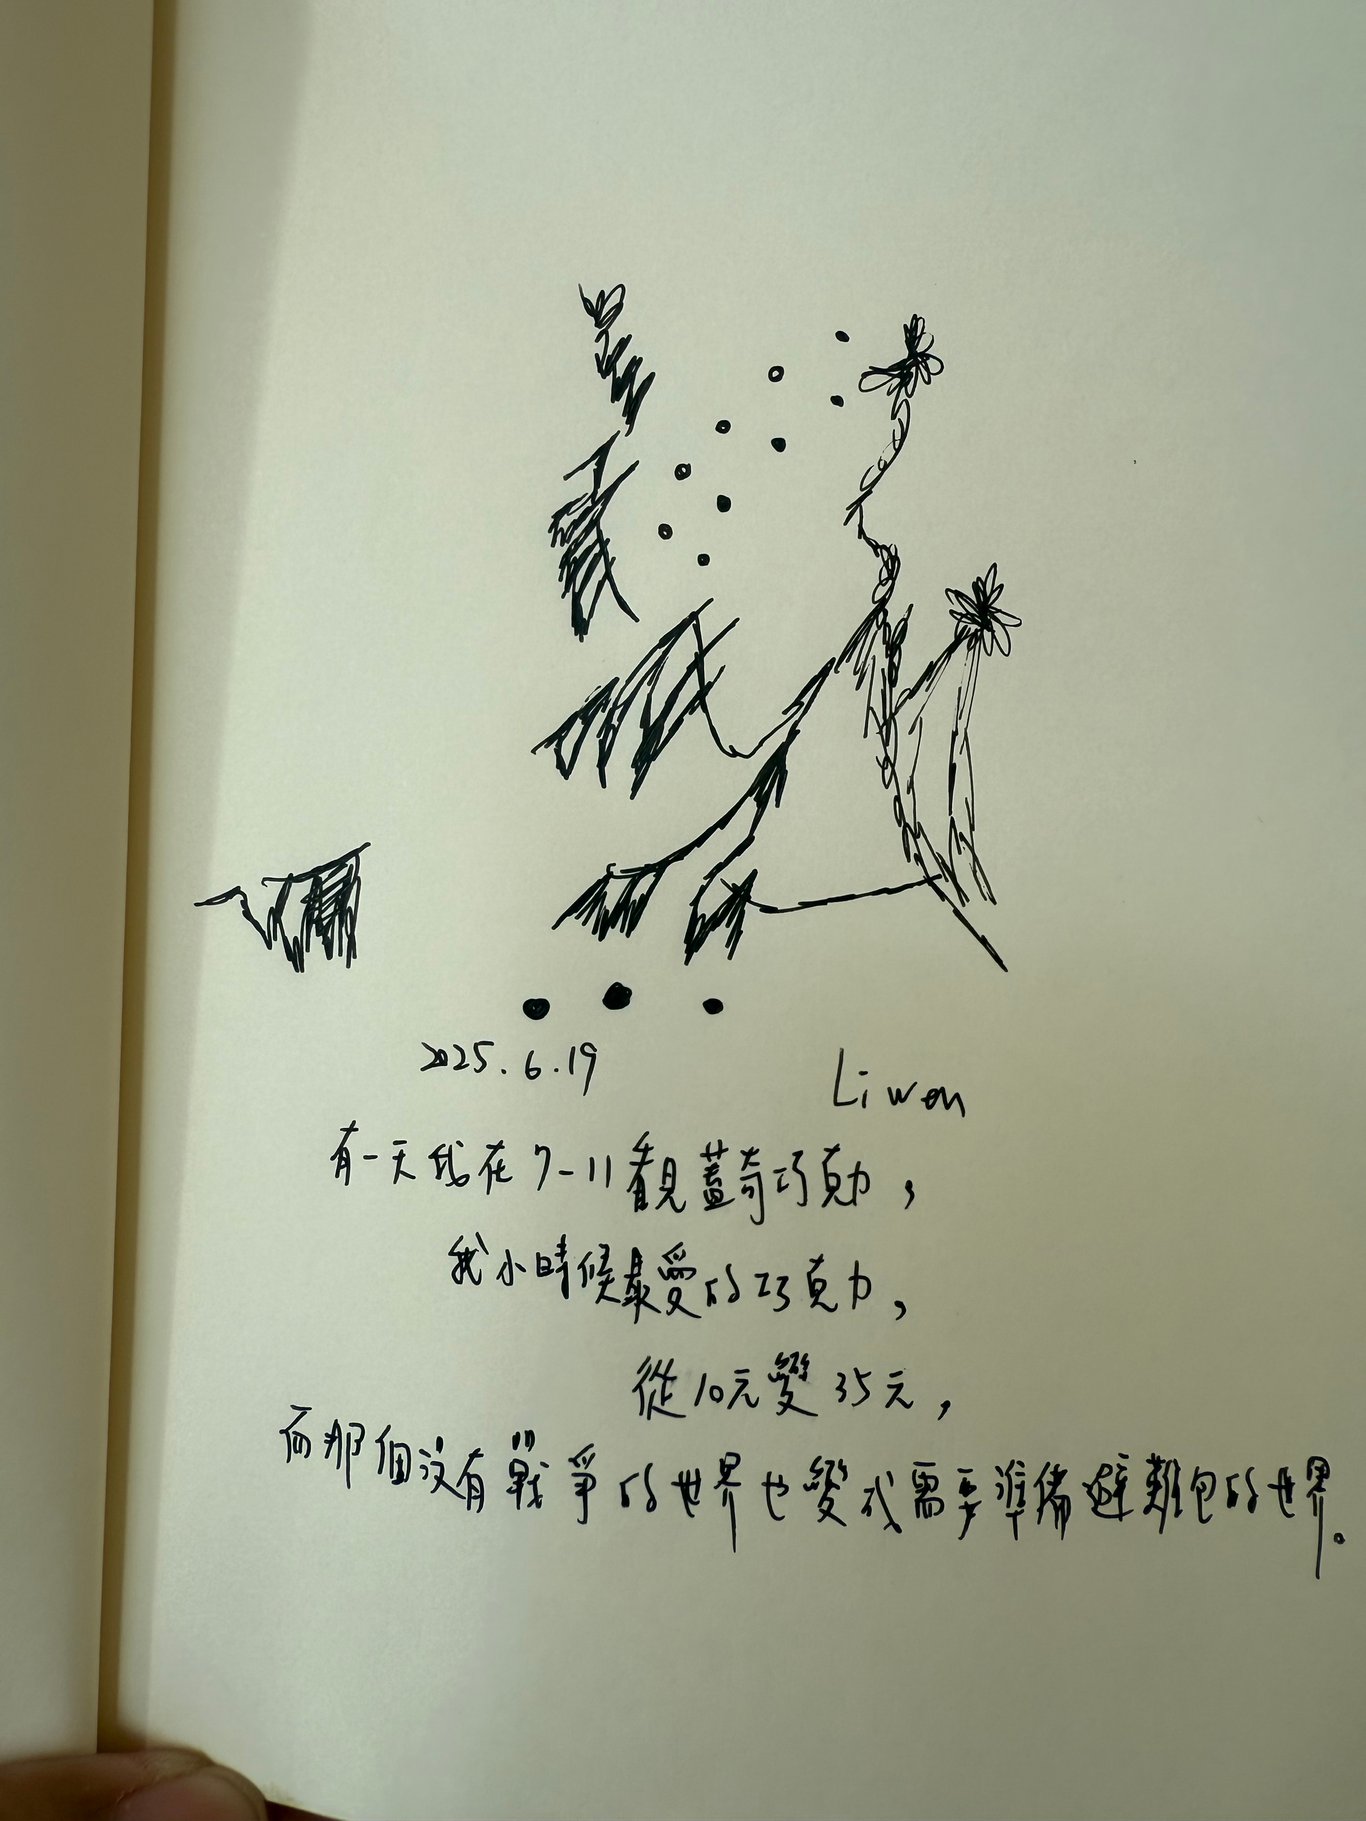 2025.6.19
Liwen
有一天我在7-11看見蓋奇巧克力,
我小時候最愛的巧克力,
從10元變35元,
而那個沒有戰爭的世界也變成需要準備避難包的世界。